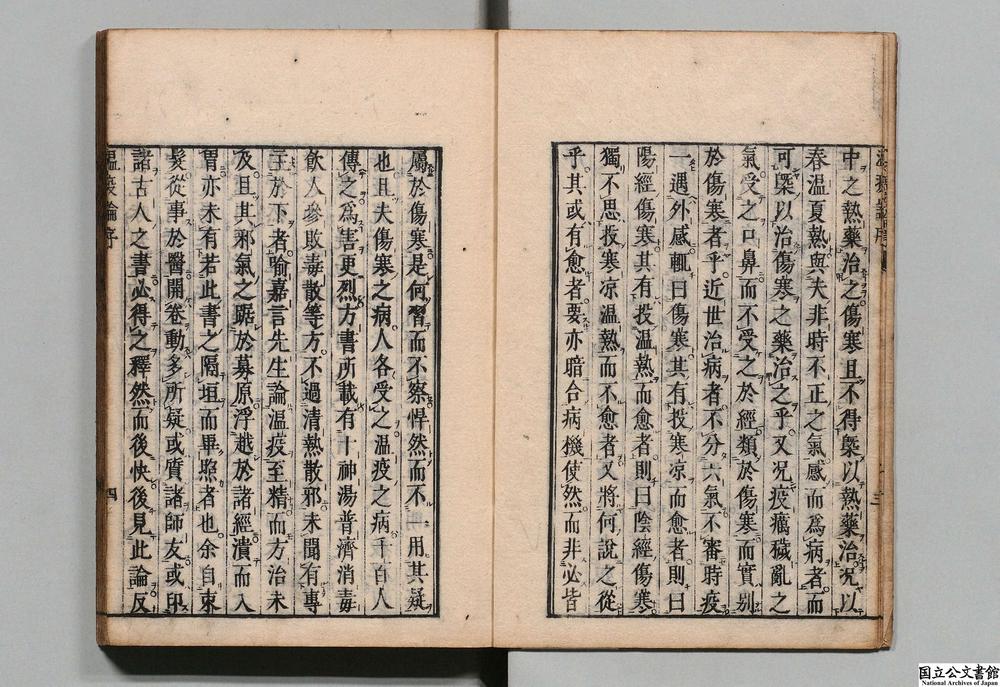 中之熱藥治之傷寒且不得槩以熱藥治况以
春温夏熱與夫非時不正之氣感而爲病者而
可槩以治傷寒之藥治之乎又况疫癘穢亂之
氣受之口鼻而不受之於經類於傷寒而實別
於傷寒者乎近世治病者不分六氣不審時疫
一遇外感輒曰傷寒其有投寒凉而愈者則曰
陽經傷寒其有投温熱而愈者則曰陰經傷寒
獨不思投寒凉温熱而不愈者又將何說之從
乎其或有愈者要亦暗合病機使然而非必皆
屬於傷寒是何習而不察悍然而不用其疑
也且夫傷寒之病人各受之温疫之病千百人
傳之爲害更烈方書所載有十神湯普濟消毒
飲人參敗毒散等方不過清熱散邪未聞有專
主於下者喻嘉言先生論温疫至精而方治未
及且其邪氣之踞於募原浮越於諸經潰而入
胃亦未有若此書之隔垣而畢照者也余自束
髮從事於醫開卷動多所疑或質諸師友或印
諸古人之書必得之釋然而後快後見此論反
温疫論序
四
国立公文書館
National Archives of Japan